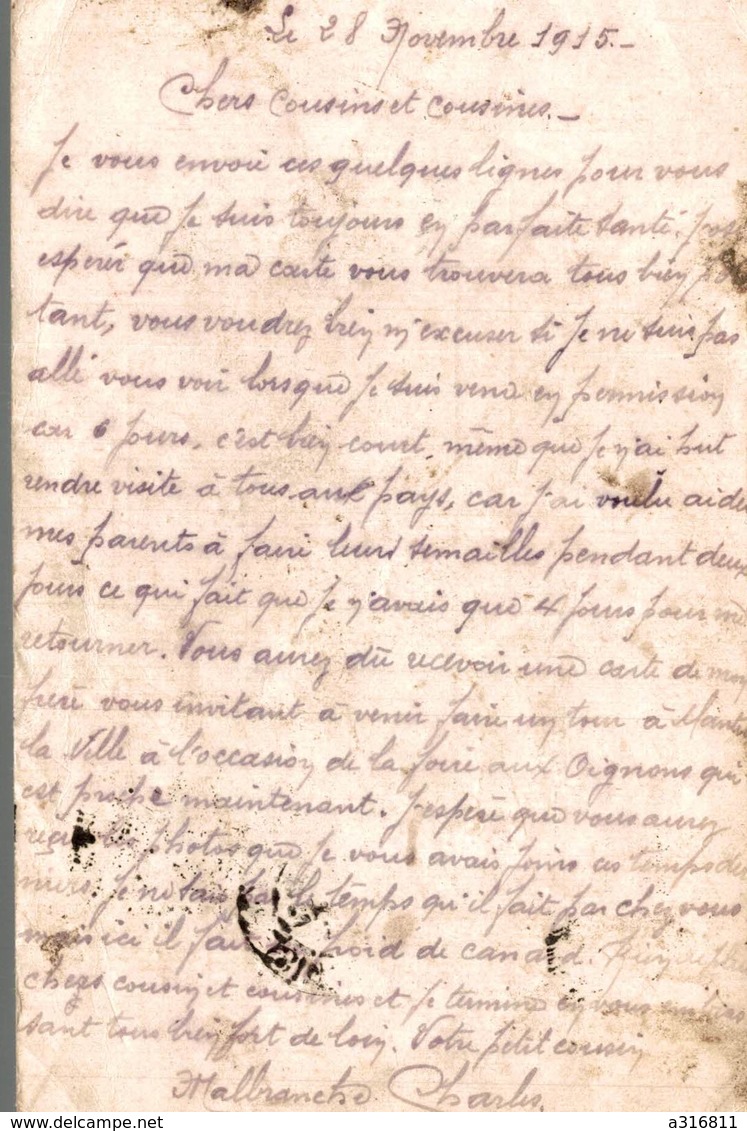 Le 28 Novembre 1915.-
Chers Cousins et Cousines.-
Je vous envoie ces quelques lignes pour vous
dire que je suis toujours en parfaite santé. J'ose
esperér que ma carte vous trouvera tous bien por
tant, vous voudrez bien m'excuser si je ne suis pas
allé vous voir lorsque je suis venu en permission
car 6 jours, c'est bien court, même que je n'ai put
rendre visite à tous aux pays, car j'ai voulu aider
mes parents à faire leurs semailles pendant deux
jours ce qui fait que je n'avais que 4 jours pour me
retourner. Vous aurez dû recevoir une carte de mon
frère vous invitant à venir faire un tour à Mantes
la Ville à l'occasion de la foire aux Oignons qui
est proche maintenant. J'espère que vous aurez
reçu les photos que je vous avais joins ces temps der
niers. Je ne sais pas le temps qu'il fait par chez vous
mais ici il fait froid de canard. Rien de
chers cousin et cousines et je termine en vous embras
sant tous bien fort de loin. Votre petit cousin
Malbranche Charles.
a316811